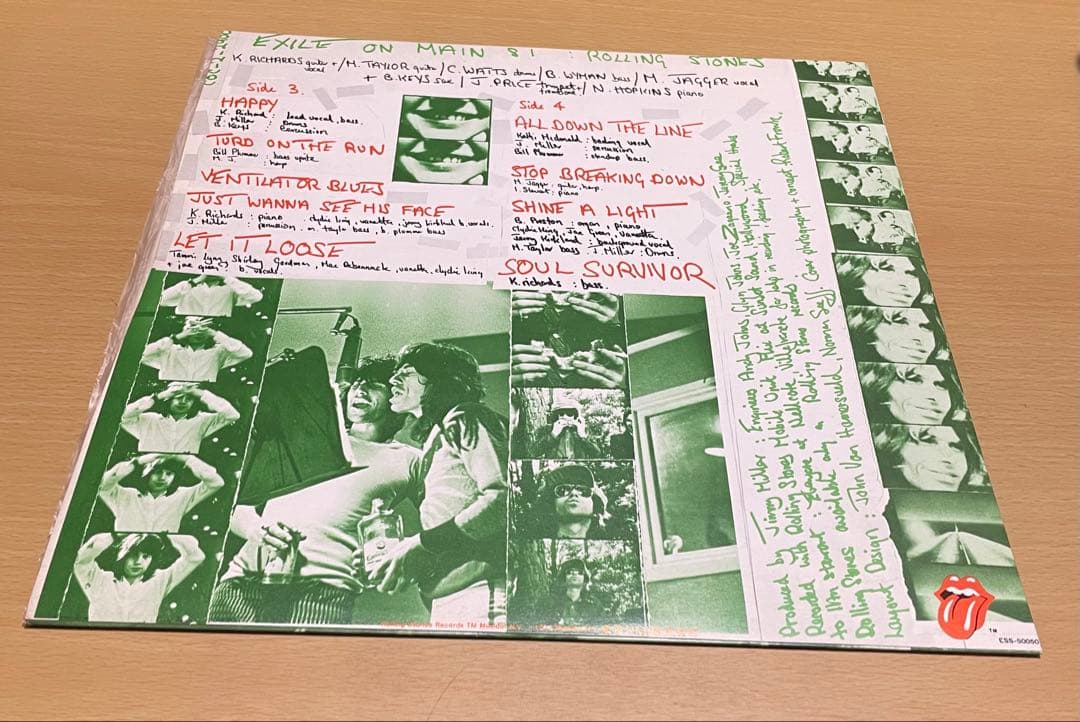 EXILE ON MAIN ST : ROLLING STONES
K. RICHARDS guitar + vocal / M. TAYLOR guitar / C. WATTS drums / B. WYMAN bass / M. JAGGER vocal
+ B. KEYS sax / J. PRICE trumpet + trombone / N. HOPKINS piano
Side 3.
HAPPY
K. Richard : lead vocal, bass.
J. Miller : Drums
B. Keys : percussion
TURD ON THE RUN
Bill Plummer : bass uprite
M. J. : harp
VENTILATOR BLUES
JUST WANNA SEE HIS FACE
K. Richards : piano . clydie king, vanetta, jerry kirkland b. vocals.
J. Miller : percussion, m. taylor bass, b. plummer bass
LET IT LOOSE
Tammi Lynn, Shirley Goodman, Mac Rebennack, vanetta, clydie king
+ joe green : b. vocals.
Side 4
ALL DOWN THE LINE
Kathi Mcdonald : backing vocal
J. Miller : percussion
Bill Plummer : standup bass.
STOP BREAKING DOWN
M. Jagger : guitar, harp.
I. Stewart : piano
SHINE A LIGHT
B. Preston : organ, piano
Clydie King, Joe Green, Vanetta
Jerry Kirkland : background vocal
M. Taylor bass J. Miller : Drums.
SOUL SURVIVOR
K. richards : bass.
Produced by Jimmy Miller : Engineers Andy Johns, Glyn Johns, Joe Zagarino, Jeremy Gee
Recorded with Rolling Stones Mobile Unit Also at Sunset Sound, Hollywood. Special thanks
to Ian stewart
Rolling Stones available only on Rolling Stones records
Layout Design : John Van Hamersveld, Norman Seeff. Cover photography + concept Robert Frank.
Rolling Stones Records TM
TM
ESS-50060